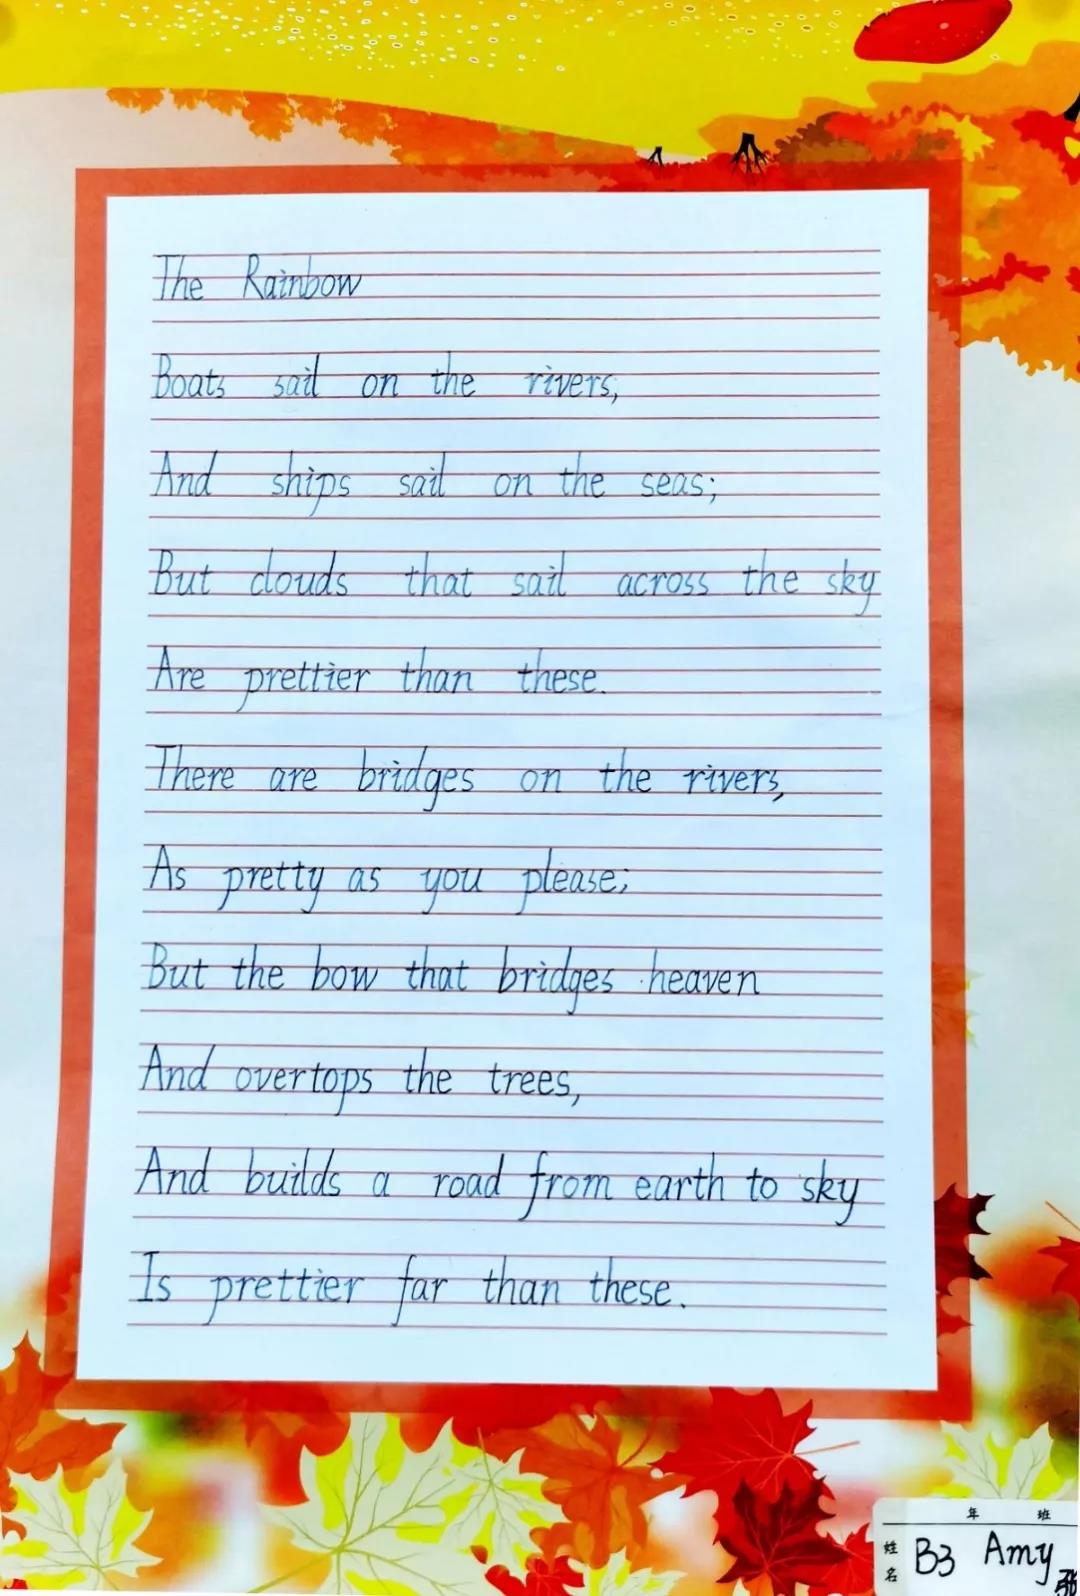 The Rainbow
Boats sail on the rivers,
And ships sail on the seas;
But clouds that sail across the sky
Are prettier than these.
There are bridges on the rivers,
As pretty as you please;
But the bow that bridges heaven
And overtops the trees,
And builds a road from earth to sky
Is prettier far than these.
年 班
姓名 B3 Amy